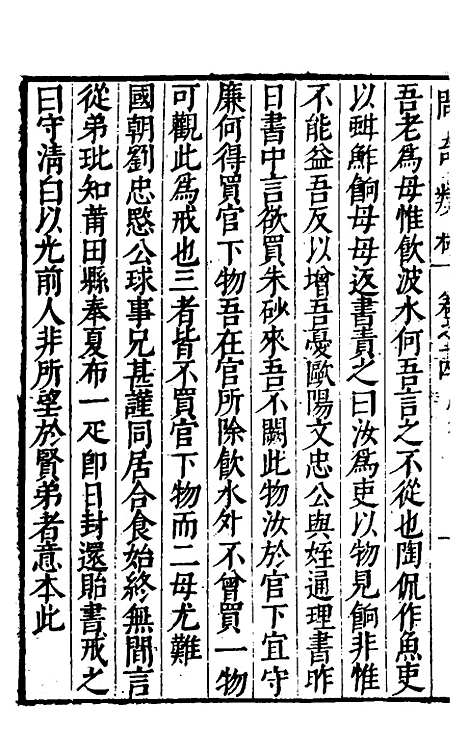 吾老為母惟飲波水何吾言之不從也陶侃作魚吏
以㽍鮓餉母母返書責之曰汝為吏以物見餉非惟
不能益吾反以增吾憂歐陽文忠公與姪通理書昨
日書中言欲買朱砂來吾不闕此物汝於官下宜守
廉何得買官下物吾在官所除飲水外不曾買一物
可觀此為戒也三者皆不買官下物而二母尤難
國朝劉忠愍公球事兄甚謹同居合食始終無間言
從弟玭知莆田縣奉夏布一疋即日封還貽書戒之
曰守清白以光前人非所望於賢弟者意本此